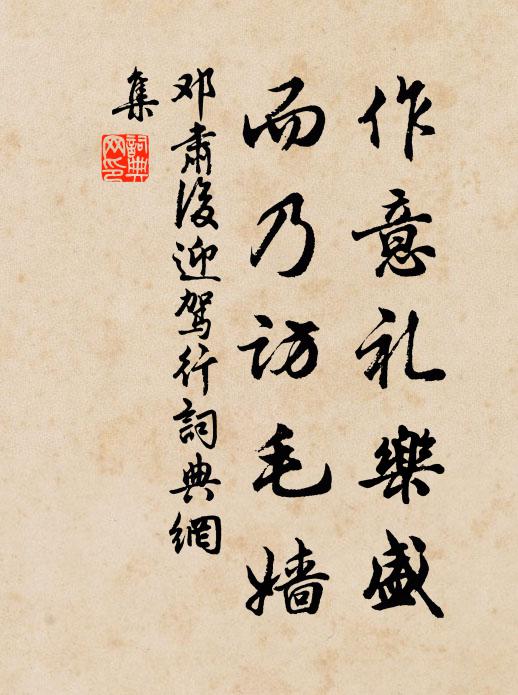 作意礼樂盛
而乃访毛嫱
邓肃後迎驾行詞典網
集
詞典
网印